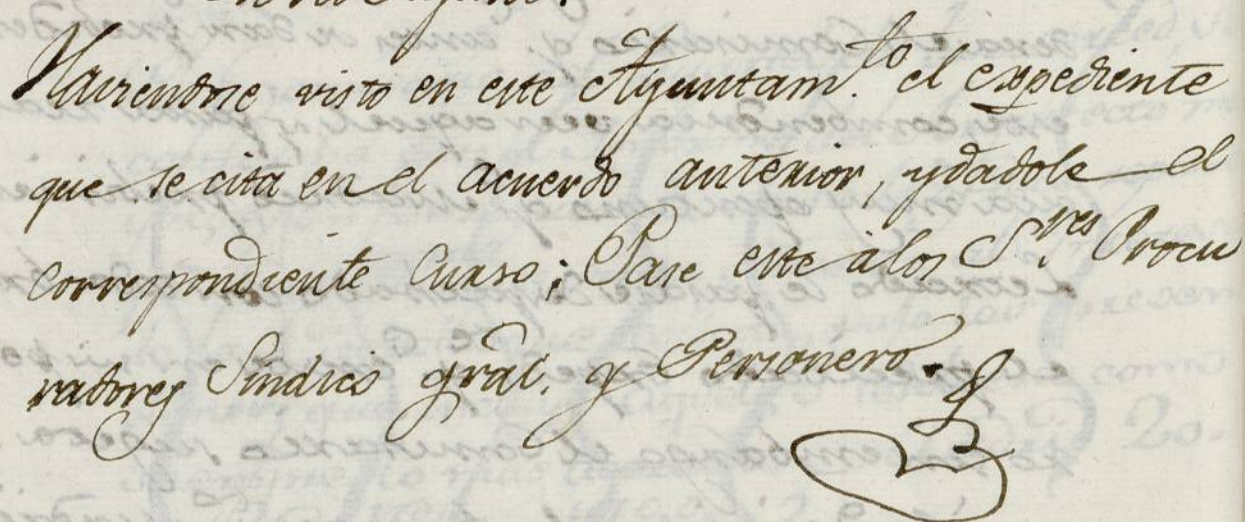 Haviendose visto en este Ayuntam.to el expediente
que se cita en el acuerdo anterior, y dadole el
correspondiente Curso; Pase este à los S.res Procu
radores Sindico gràl. y Personero.